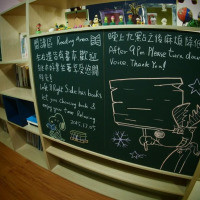 閱讀區 Reading Area
左右邊皆有書本歡迎
Left & Right Side has books
let you choosing books &
enjoy your time Relaxing
2015.12.05
晚上九點之後麻煩降低
After 9pm Please turn down
Voice. Thank You!